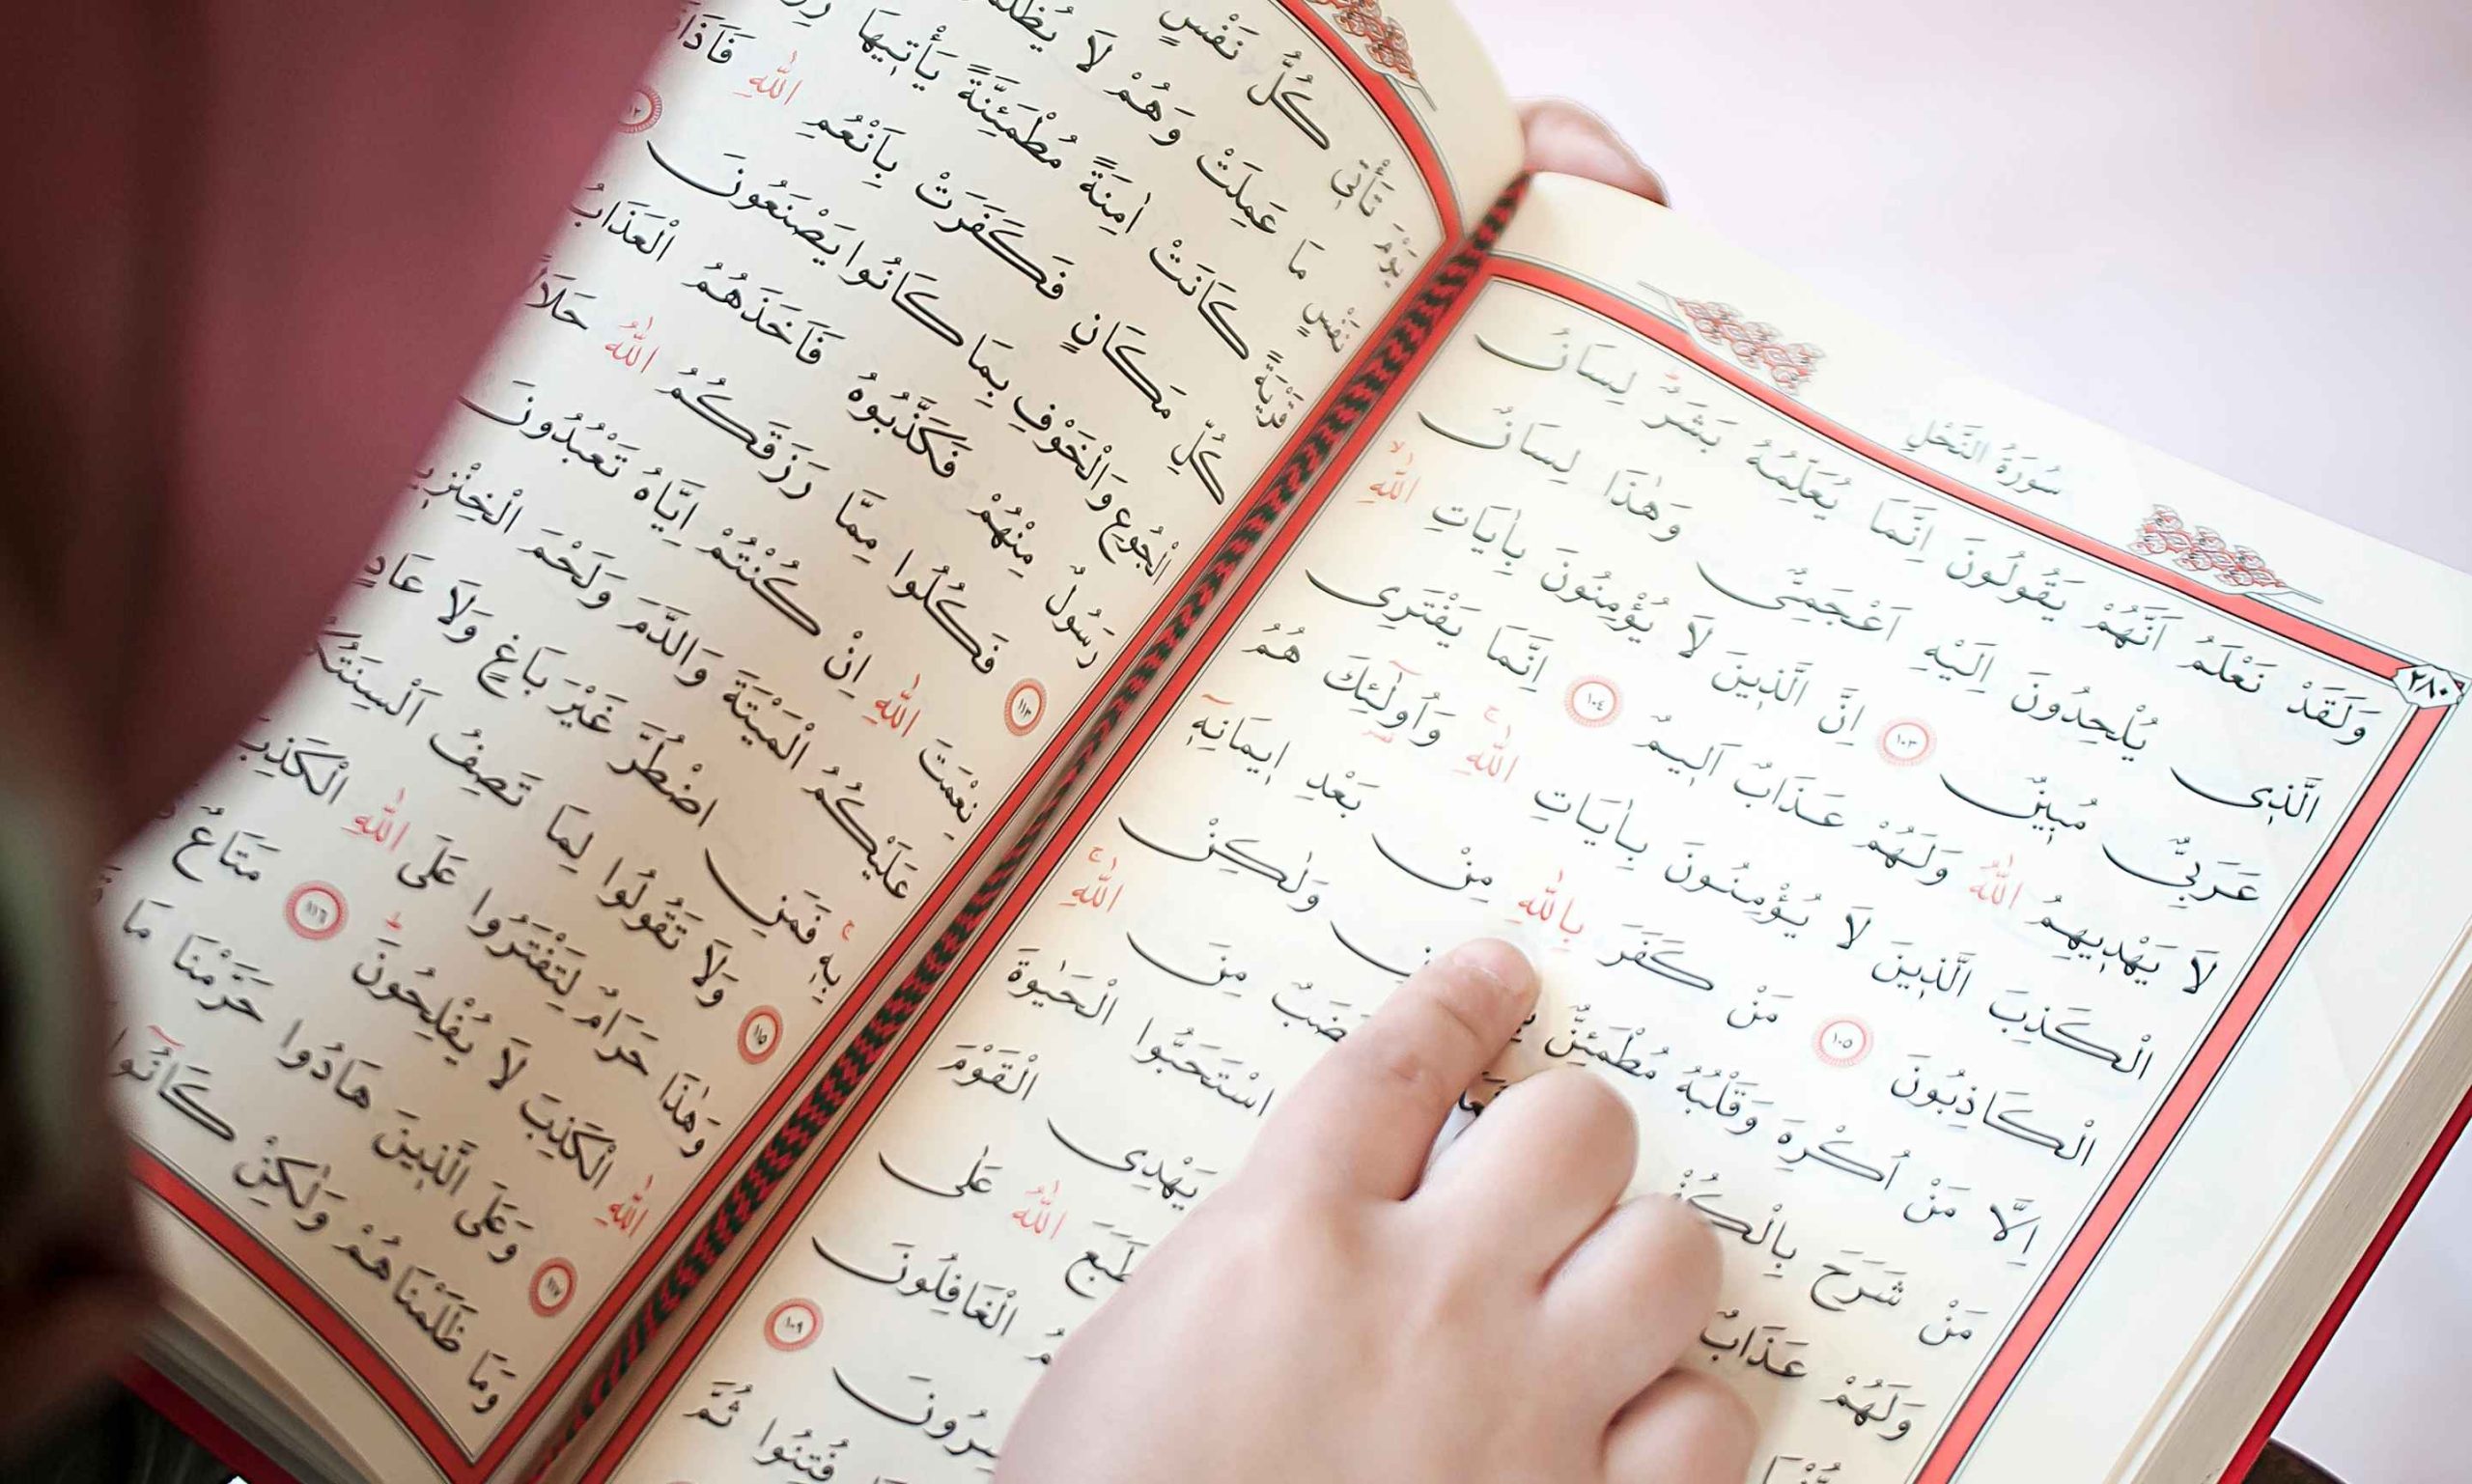 سُورَةُ النَّحْلِ
٢٨٠
وَلَقَدْ نَعْلَمُ اَنَّهُمْ يَقُولُونَ اِنَّمَا يُعَلِّمُهُ بَشَرٌۜ لِسَانُ
الَّذ۪ي يُلْحِدُونَ اِلَيْهِ اَعْجَمِيٌّ وَهٰذَا لِسَانٌ
عَرَبِيٌّ مُب۪ينٌ ١٠٣ اِنَّ الَّذ۪ينَ لَا يُؤْمِنُونَ بِاٰيَاتِ اللّٰهِۙ
لَا يَهْد۪يهِمُ اللّٰهُ وَلَهُمْ عَذَابٌ اَل۪يمٌ ١٠٤ اِنَّمَا يَفْتَرِي
الْكَذِبَ الَّذ۪ينَ لَا يُؤْمِنُونَ بِاٰيَاتِ اللّٰهِۚ وَاُو۬لٰٓئِكَ هُمُ
الْكَاذِبُونَ ١٠٥ مَنْ كَفَرَ بِاللّٰهِ مِنْ بَعْدِ ا۪يمَانِه۪ٓ
اِلَّا مَنْ اُكْرِهَ وَقَلْبُهُ مُطْمَئِنٌّ وَلٰكِنْ
مَنْ شَرَحَ مِنَ اللّٰهِۚ
وَلَهُمْ عَذَابٌ اسْتَحَبُّوا الْحَيٰوةَ
يَهْدِي الْقَوْمَ
طَبَعَ اللّٰهُ عَلٰى
الْغَافِلُونَ
١٠٩
فُتِنُوا ثُمَّ
يَوْمَ تَأْت۪ي كُلُّ نَفْسٍ
نَفْسٍ مَا عَمِلَتْ وَهُمْ لَا
قَرْيَةً كَانَتْ اٰمِنَةً مُطْمَئِنَّةً يَأْت۪يهَا
كُلِّ مَكَانٍ فَكَفَرَتْ بِاَنْعُمِ اللّٰهِ
الْجُوعِ وَالْخَوْفِ بِمَا كَانُوا يَصْنَعُونَ
رَسُولٌ مِنْهُمْ فَكَذَّبُوهُ فَاَخَذَهُمُ الْعَذَابُ
١١٣ فَكُلُوا مِمَّا رَزَقَكُمُ اللّٰهُ
نِعْمَتَ اللّٰهِ اِنْ كُنْتُمْ اِيَّاهُ تَعْبُدُونَ
عَلَيْكُمُ الْمَيْتَةَ وَالدَّمَ وَلَحْمَ
بِه۪ۚ فَمَنِ اضْطُرَّ غَيْرَ بَاغٍ وَلَا عَادٍ
١١٥ وَلَا تَقُولُوا لِمَا تَصِفُ
وَهٰذَا حَرَامٌ لِتَفْتَرُوا عَلَى اللّٰهِ الْكَذِبَ
اللّٰهِ الْكَذِبَ لَا يُفْلِحُونَۜ ١١٦ مَتَاعٌ
١١٧ وَعَلَى الَّذ۪ينَ هَادُوا حَرَّمْنَا مَا
وَمَا ظَلَمْنَاهُمْ وَلٰكِنْ كَانُٓوا